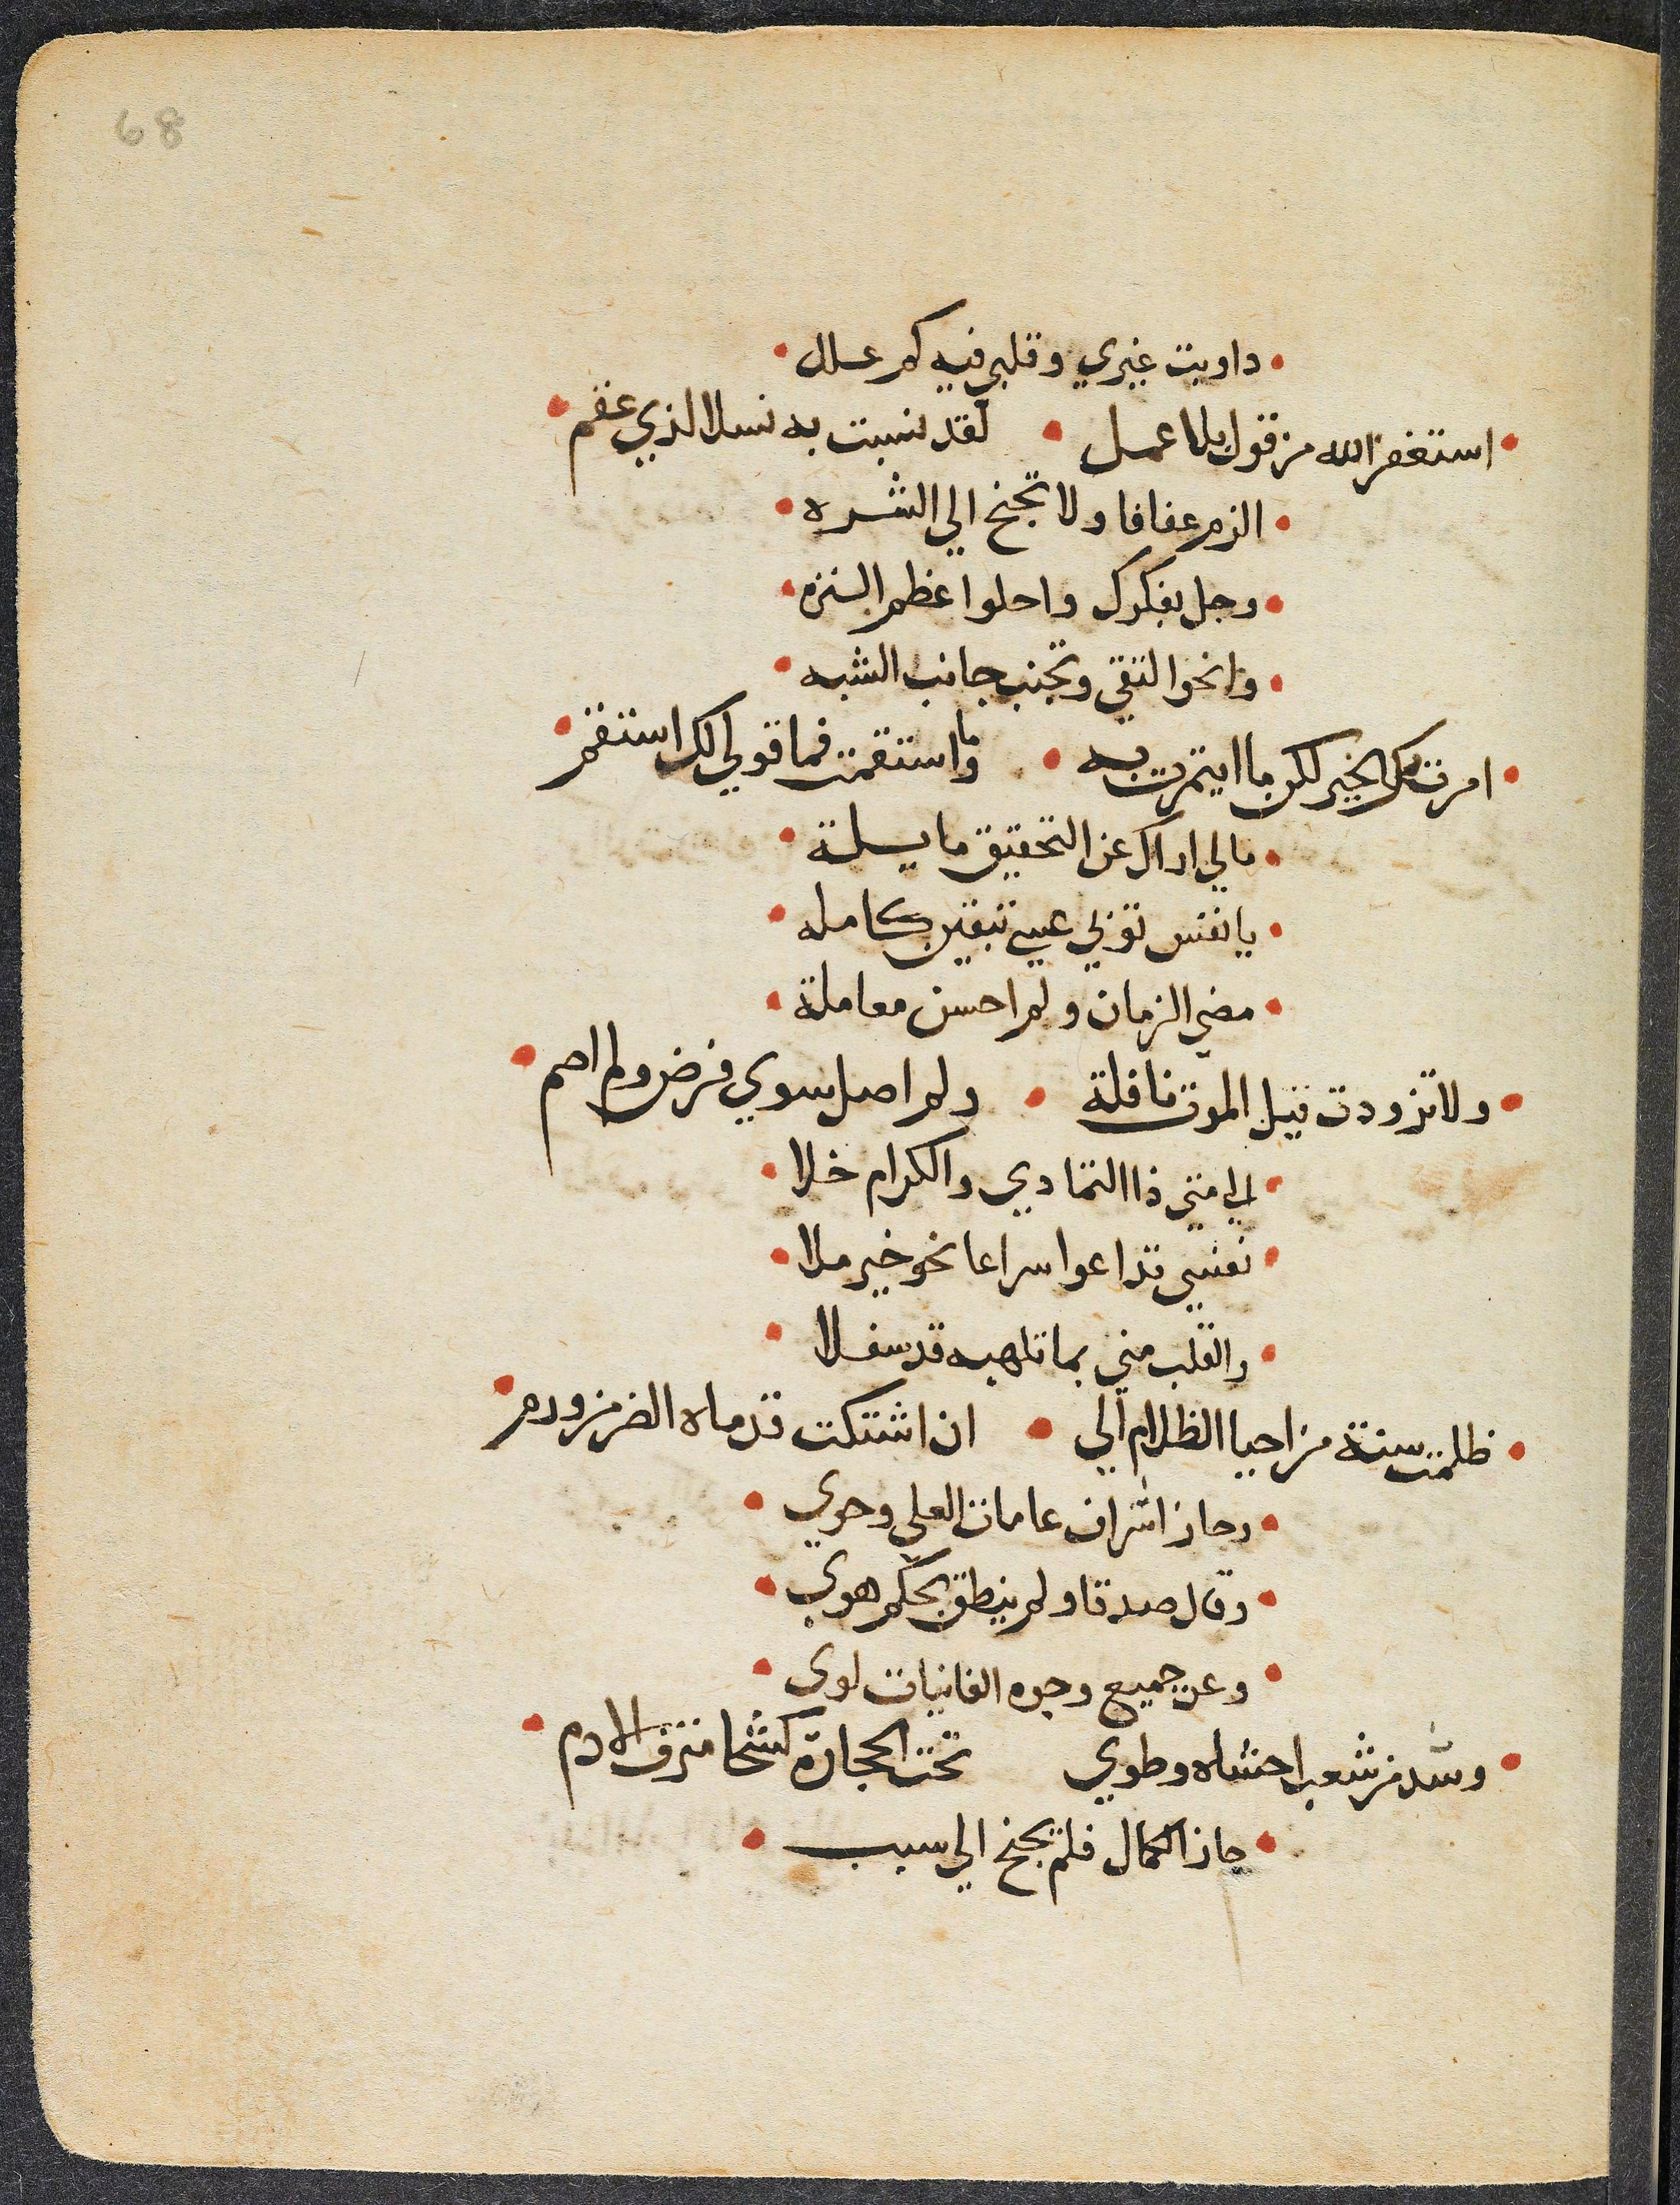 68
داويت غيري وقلبي فيه كم علل
استغفر الله من قول بلا عمل • لقد نسبت به نسلا لذي عقم
الزم عفافا ولا تجنح الي الشره
وجل بفكرك واحلوا عظم النزه
وانحوا لتقي وتجنب جانب الشبه
امرتك الخير لكن ما ايتمرت به • وما استقمت فما قولي لك استقم
مالي اراك عن التحقيق مايلة
يا نفس توبي عسي تبقين كامله
مضي الزمان ولم احسن معاملة
ولا تزودت قبل الموت نافلة • ولم اصل سوي فرض ولم اصم
الي متي ذا التمادي والكرام خلا
نفسي تداعوا سراعا نحو خير ملا
والقلب مني بما تلهيه قد سفلا
ظلمت سنة من احيا الظلام الي • ان اشتكت قدماه الضر من ورم
وحاز اشراف العلي وحوي
وقال صدقا ولم ينطق بحكم هوي
وعن جميع وجوه الفانيات لوي
وشد من شعب احشاه وطوي تحت الحجارة كشحا مترف الادم
حاز الكمال فلم يجنح الي سبب